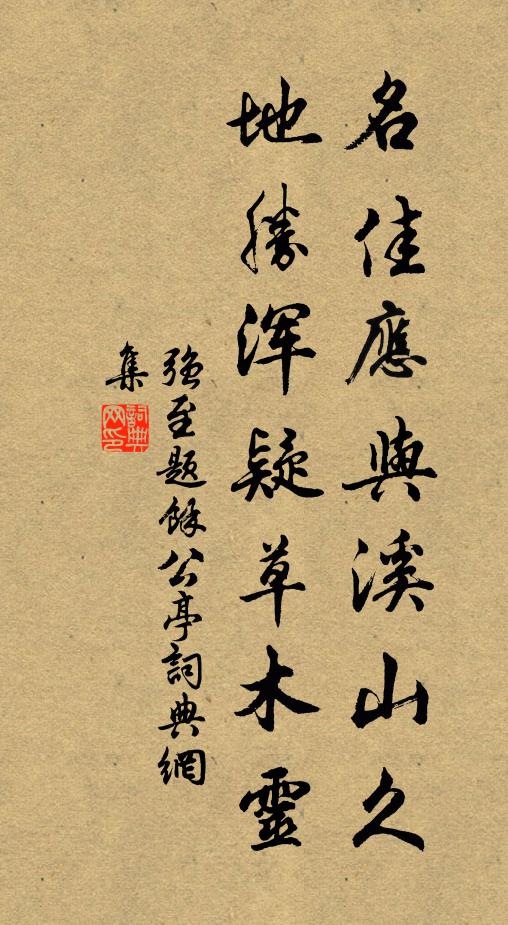 名佳應與溪山久
地勝渾疑草木靈
強至題餘公亭詞典網
集
詞典网印